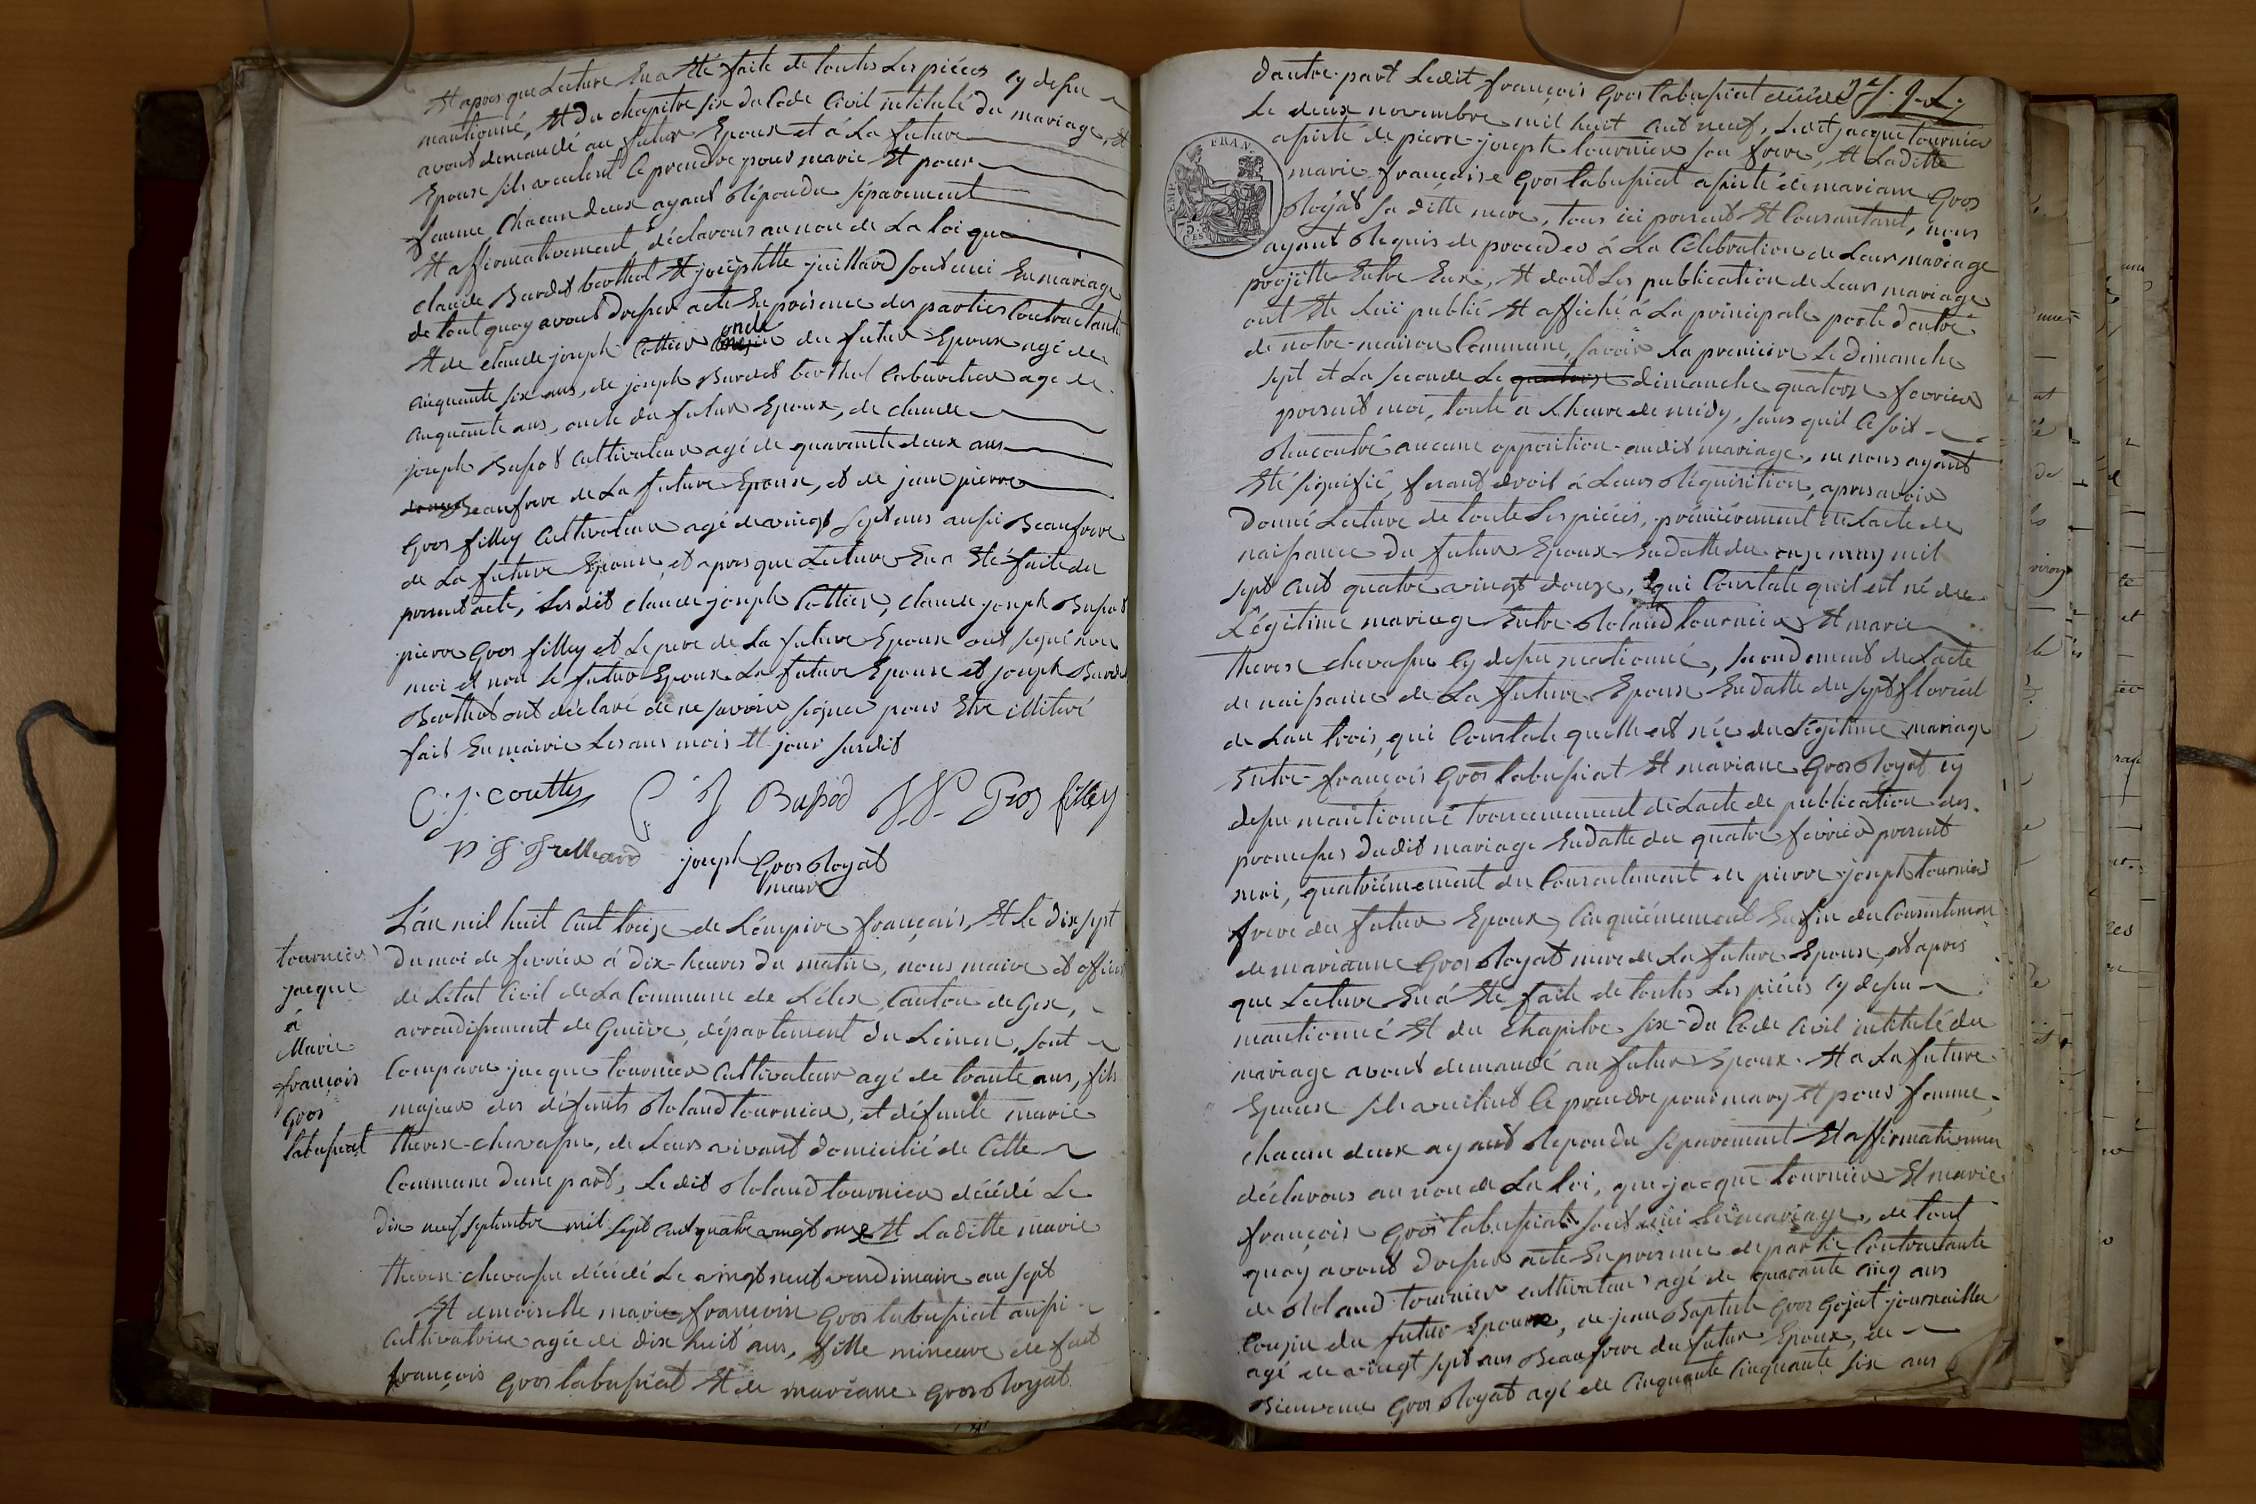 Et apres que Lecture En a Eté faite de toutes Les piéces Cy dessu
mantionné, Et Du chapitre six du Code Civil intitulé du mariage, Et
avont demandé au futur Epoux et á La future
Epouse s'ils veulent Ce prendre pour marie Et pour
famme Chacun deux ayant Répondu séparément
Et affirmativement, déclarons au non de La loi que
claude Burdet berthet Et joséphtte juillard sont uni En mariage
de tout quoy avont dresser acte En présence des parties Contractante
Et de claude joseph Cottier oncle du futur Epoux agé de
cinquante six ans, de joseph Burdet berthet Cabaretier agé de
cinquante ans, oncle du futur Epoux, de claude
joseph Bussod Cultivateur agé de quarante deux ans
Beaufrere de La future Epouse, et de jean pierre
Gros filley Cultivateur agé de vingt sept ans aussi Beaufrere
de La future Epouse, et apres que Lecture En a Eté faite du
present acte, Les dit claude joseph Cottier, claude joseph Bussod
pierre Gros filley et Le pere de La future Epouse ont signé avec
moi et non Le futur Epoux La future Epouse et joseph Burdet
Berthet ont déclaré de ne savoir signer pour Etre illitéré
fait En mairie Les ans mois Et jour susdit
C. j. Couttier C j Bussod J. P. Gros filley
joseph Gros Royat
maire
L'an mil huit Cent treize de L'empire français, Et Le dix sept
Du moi de fevrier á Dix-heures du matin, nous maire et officier
de L'état Civil de La Commune de Lélex, Canton de Gex,
arrondissement de Genève, département du Leman, sont
Comparu jacque tournier Cultivateur agé de trante ans, fils
majeur des défunts Roland tournier, et défunte marie
therese chevassu, de Leurs vivant domicilié de Cette
Commune dune part, Ledit Roland tournier décédé Le
Dix neuf septembre mil sept cent quatre vingt onze Et Laditte marie
therese chevassu décédé Le vingt neuf vendimaire an sept
Et demoiselle marie françoise Gros labussiat aussi
Cultivatrice agée de dix huit ans, fille mineure de feut
françois Gros labussiat Et de mariane Gros Royat
tournier
jacque
á
Marie
françois
Gros
labussiat
d'autre part Ledit françois Gros labussiat décédé
Le deux novembre mil huit Cent neuf, Ledit jacque tournier
assisté de pierre joseph tournier son frere, Et Laditte
marie françoise Gros labussiat assisté de mariane Gros
Royat sa ditte mere, tous ici present Et Consantant, nous
ayant Requis de proceder á La Célébration de Leur mariage
projétte Entre Eux, Et dont Les publication de Leurs mariage
ont Eté Lui publié Et affiché á La principale porte d'entré
de notre maison Commune, savoir La premiere Le dimanche
sept et La seconde Le dimanche quatorze fevrier
present moi, toute a L'heure de midy, sans quil Ce soit
Rencontré aucune opposition audit mariage, ne nous ayant
Eté signifié, fesant droit á Leurs Réquisition, apres avoir
Donné Lecture de toute Les piéces, prémiérement de L'acte de
naissance du futur Epoux En datte du onze may mil
sept Cent quatre vingt douze, qui Constate quil est né du
Légitime mariage Entre Roland tournier Et marie
therese chevassu Cy dessu mationné, secondement de L'acte
de naissance de La future Epouse En datte du sept floréal
de L'an trois, qui Constate quélle est née du Légitime mariage
Entre françois Gros labussiat Et mariane Gros Royat Cy
dessu mantionné troisiemement de L'acte de publication des
promesses dudit mariage En datte du quatre fevrier present
moi, quatriémement du Consentement de pierre joseph tournier
frere du futur Epoux, Cinquiémement Enfin du Consentement
de marianne Gros Royat mere de La future Epouse, et apres
que Lecture En á Eté faite de toutes Les piéces Cy dessu
mantionné Et du chapitre six du Code Civil intitulé du
mariage avont demandé au futur Epoux Et a La future
Epouse s'ils veullent Ce prendre pour mary Et pour famme,
chacun deux ayant Repondu séparement Et affirmativement
déclarons au non de La loi, que jacque tournier Et marie
françoise Gros labussiat sont uni En mariage, de tout
quoy avont dresser acte En presence de partie Contractante
de Roland tournier cultivateur agé de quarante cinq ans
Cousin du futur Epoux, de jean Baptiste Gros Gojat journaillier
agé de vingt sept ans Beaufrere du futur Epoux, de
Bienvenu Gros Royat agé de Cinquante Cinquante six ans
FRAN.
EMP.
75
CES